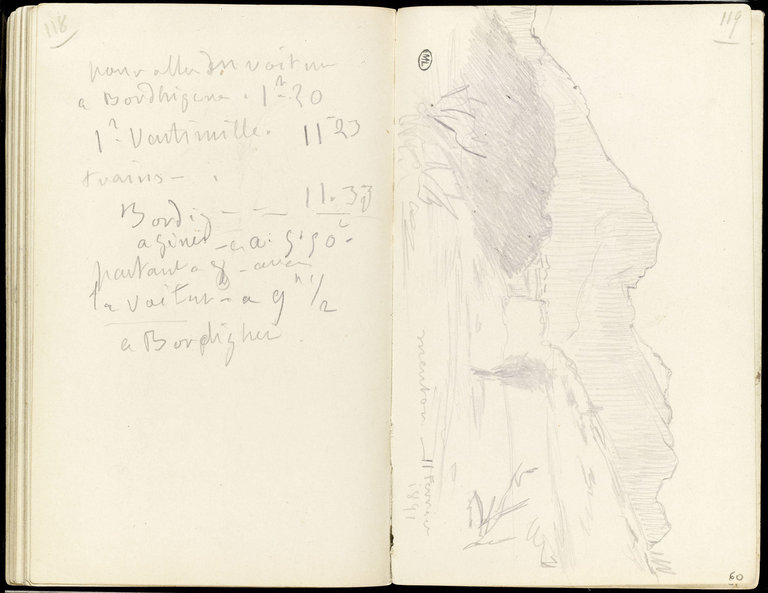 118
pour aller en voiture
a Bordhigera . 1h 30
1h Vantimille . 11 23
trains -
Bordig - - 11. 33
a gines - a
partant a 9 - avec
la voiture - a 9h 1/2
a Bordigher
119
ML
menton 11 fevrier
1891
60